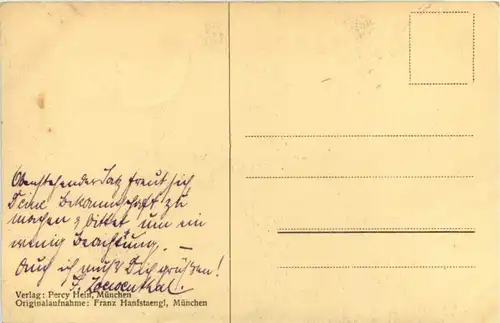 Obenstehender Satz freut sich
Deine Bekanntschaft zu
machen & bittet um ein
wenig Beachtung. —
Auch ich muß Dich grüßen!
Loewenthal.
Verlag: Percy Hein, München
Originalaufnahme: Franz Hanfstaengl, München